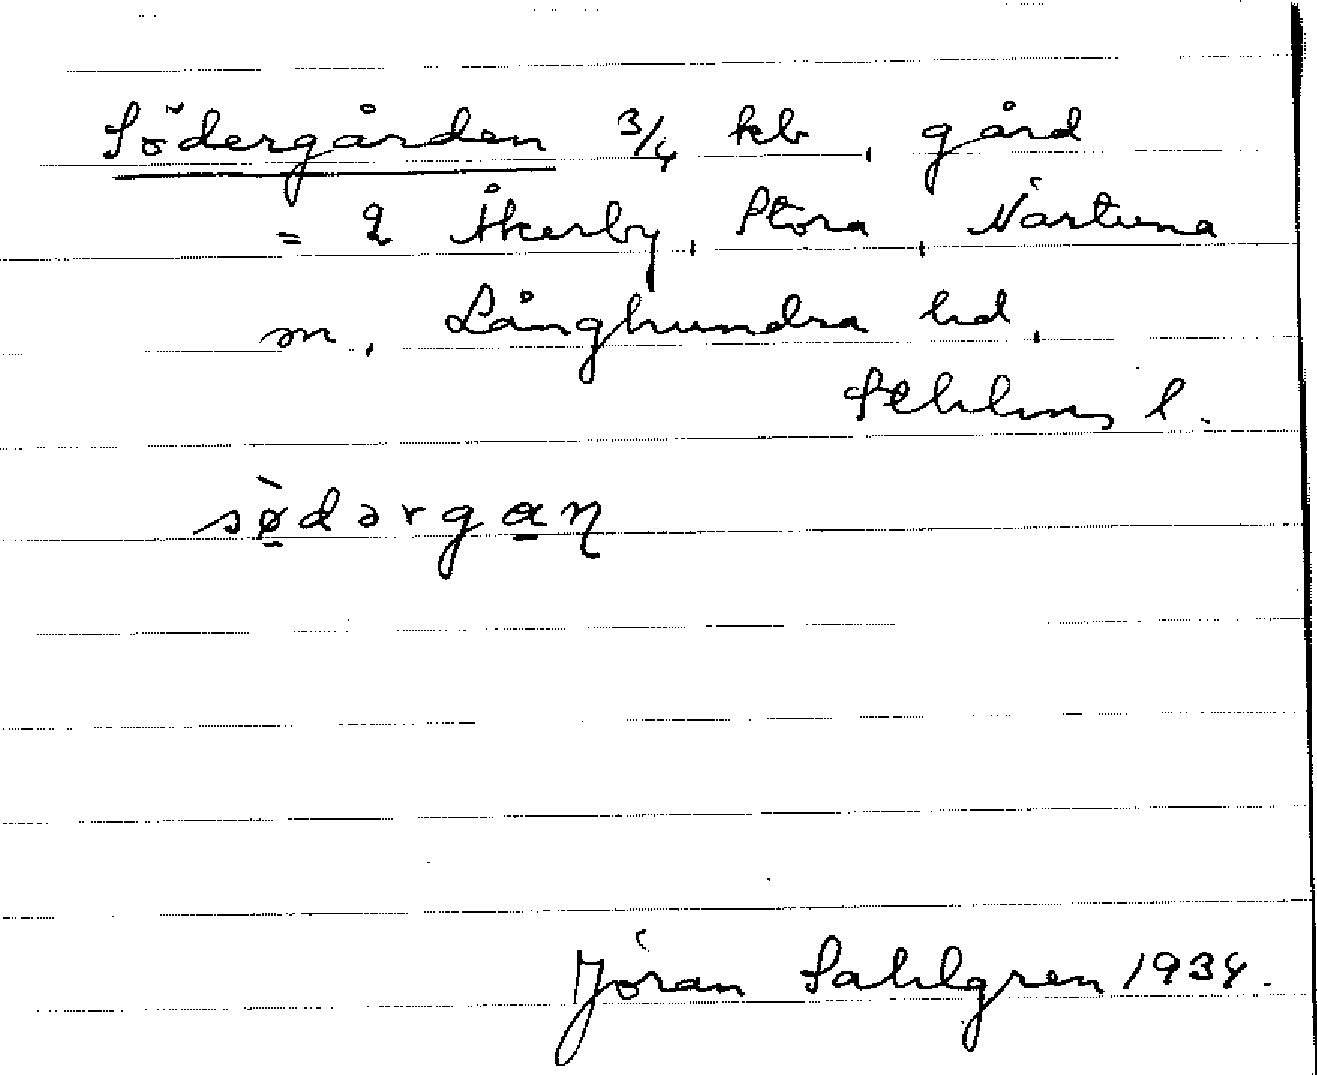 Södergården 3/4 kb, gård
= 2 Åkerby, Stora, Närtuna
sn, Långhundra hd,
Sthlms l.
sø̀dərgaɳ
Jöran Sahlgren 1934.